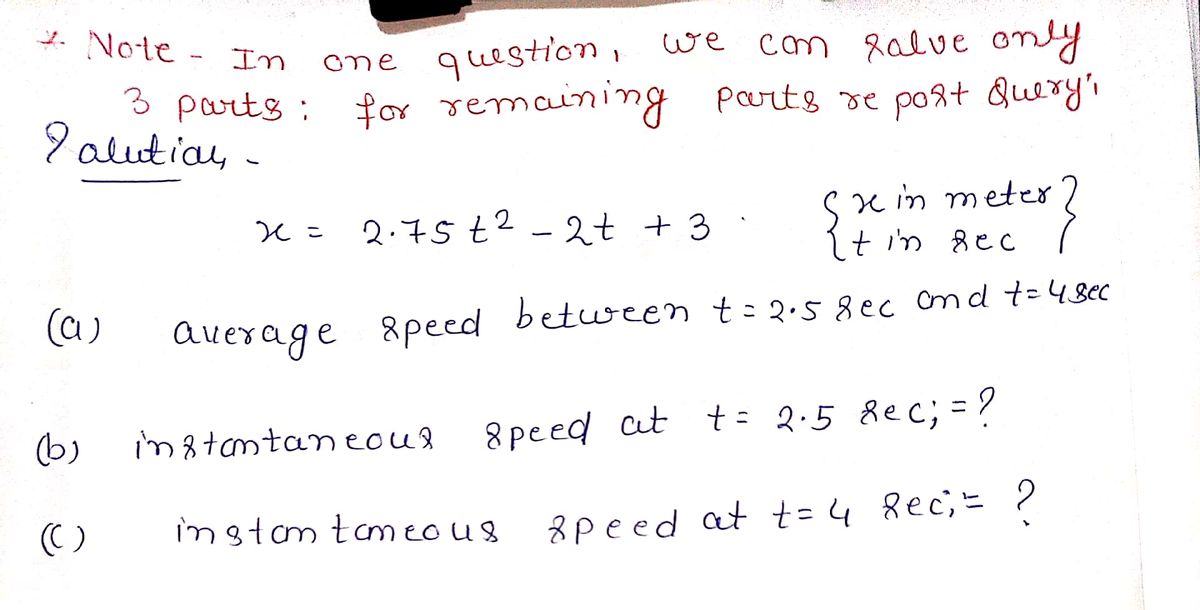 * Note - In one question, we can salve only
3 parts: for remaining parts re post Query'
Salution -
x = 2.75 t² - 2t + 3 . {x in meter
t in sec}
(a) average speed between t = 2.5 sec and t = 4 sec
(b) instantaneous speed at t = 2.5 sec; = ?
(c) instantaneous speed at t = 4 sec; = ?